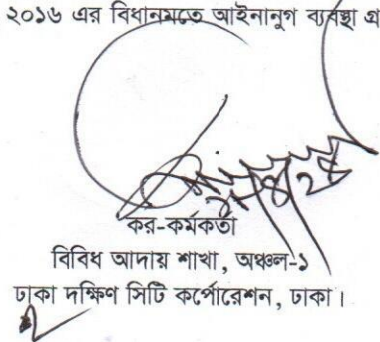 ২০১৬ এর বিধানমতে আইনানুগ ব্যবস্থা গ্র
কর-কর্মকর্তা
বিবিধ আদায় শাখা, অঞ্চল-১
ঢাকা দক্ষিণ সিটি কর্পোরেশন, ঢাকা।